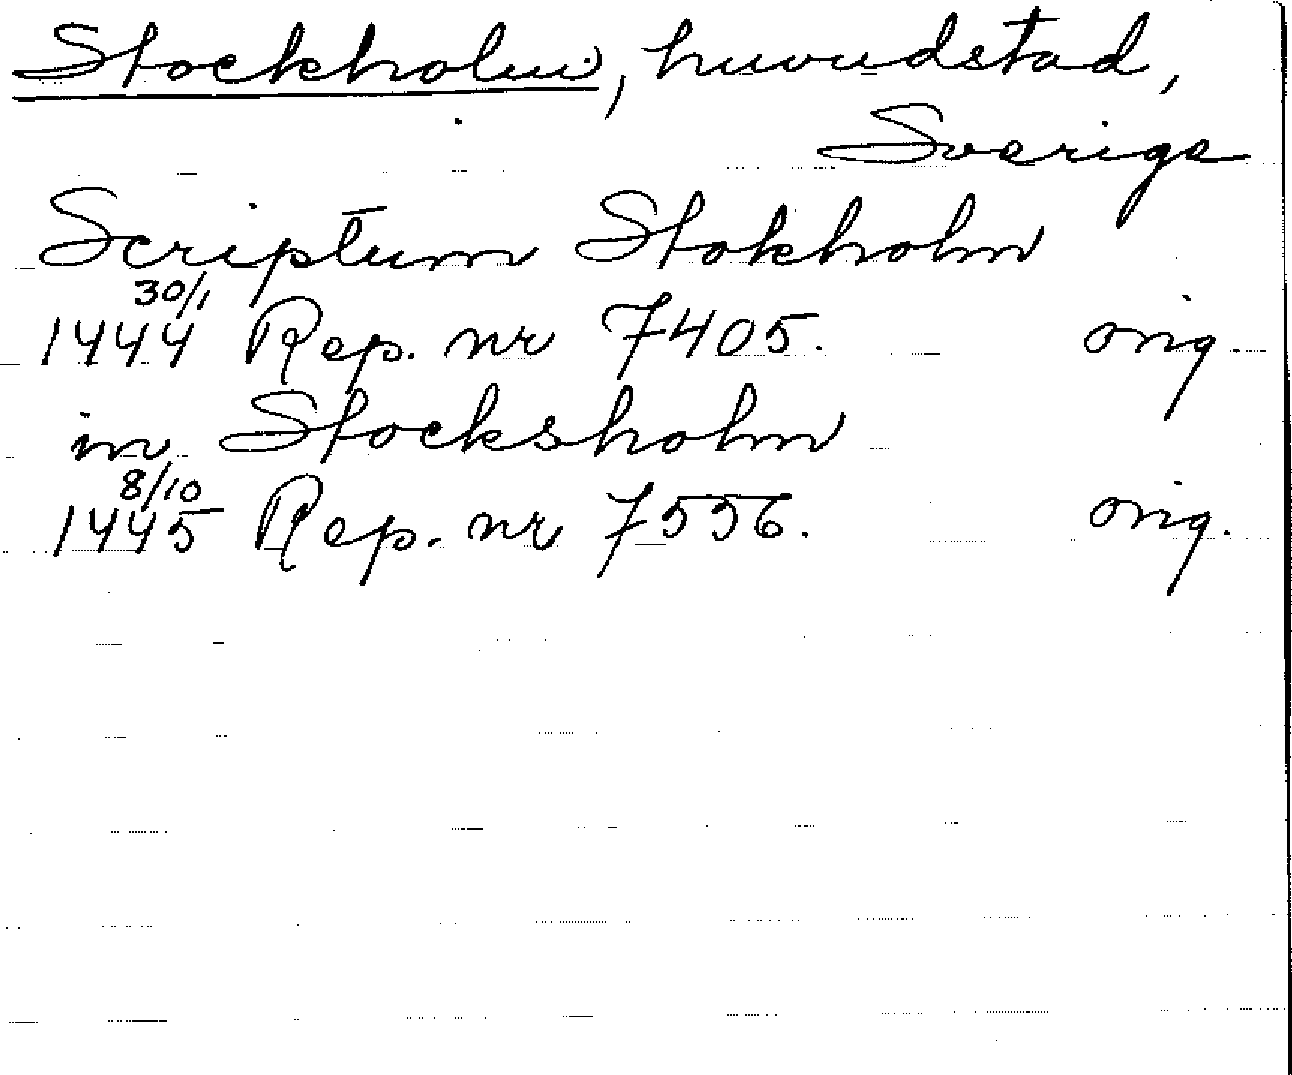 Stockholm, huvudstad,
Sverige
Scriptum Stokholm
30/1
1444 Rep. nr 7405. orig.
in Stocksholm
8/10
1445 Rep. nr 7556. orig.